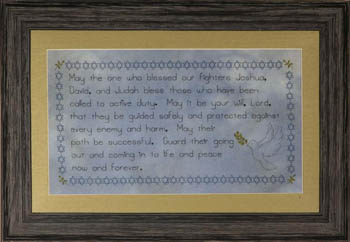 May the one who blessed our fighters Joshua,
David, and Judah bless those who have been
called to active duty. May it be your will, Lord,
that they be guided safely and protected against
every enemy and harm. May their
path be successful. Guard their going
out and coming in to life and peace
now and forever.